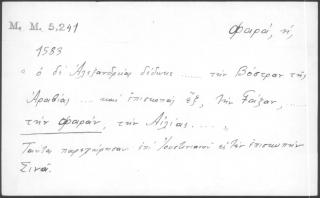 M. M. 5,241
Φαρά, ἡ,
1583
« ὁ δὲ Ἀλεξανδρείας δίδωσι ..... τὴν Βόστραν τῆς
Ἀραβίας .... καὶ ἐπισκοπὰς ἕξ, τὴν Γάζαν, ....
τὴν Φαράν, τὴν Αἰλίας.... »
Ταῦτα παρεχώρησαν ἐπὶ Ἰουστινιανοῦ εἰς τὴν ἐπισκοπὴν
Σινᾶ.